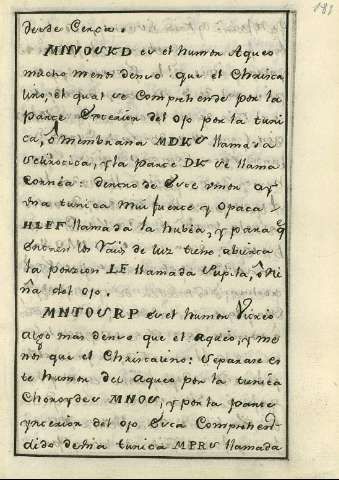 desde Cerca.
MNVOSKD es el humor Aqueo
mucho menos denso que el Christa
lino, el qual se Comprehende por la
parte Exterior del ojo por la tuni
ca, ô membrana MDKS llamada
Sclirocica, y la parte DK se llama
Cornéa: dentro de este umor ay
vna tunica mui fuerte y Opaca
HIEF llamada la hubéa, y para q
entren los Raiᵒˢ de luz tiene abierta
la porzion IE llamada Pupila, ô Ni
ña del ojo.
MNTOSRP es el humor Vitreo
algo mas denso que el aqueo, y me
nos que el Christalino: Separase es
te humor del Aqueo por la tunica
Choroydes MNOS, y por la parte
ynterior del ojo esta Comprehen
dido de otra tunica MPRS llamada